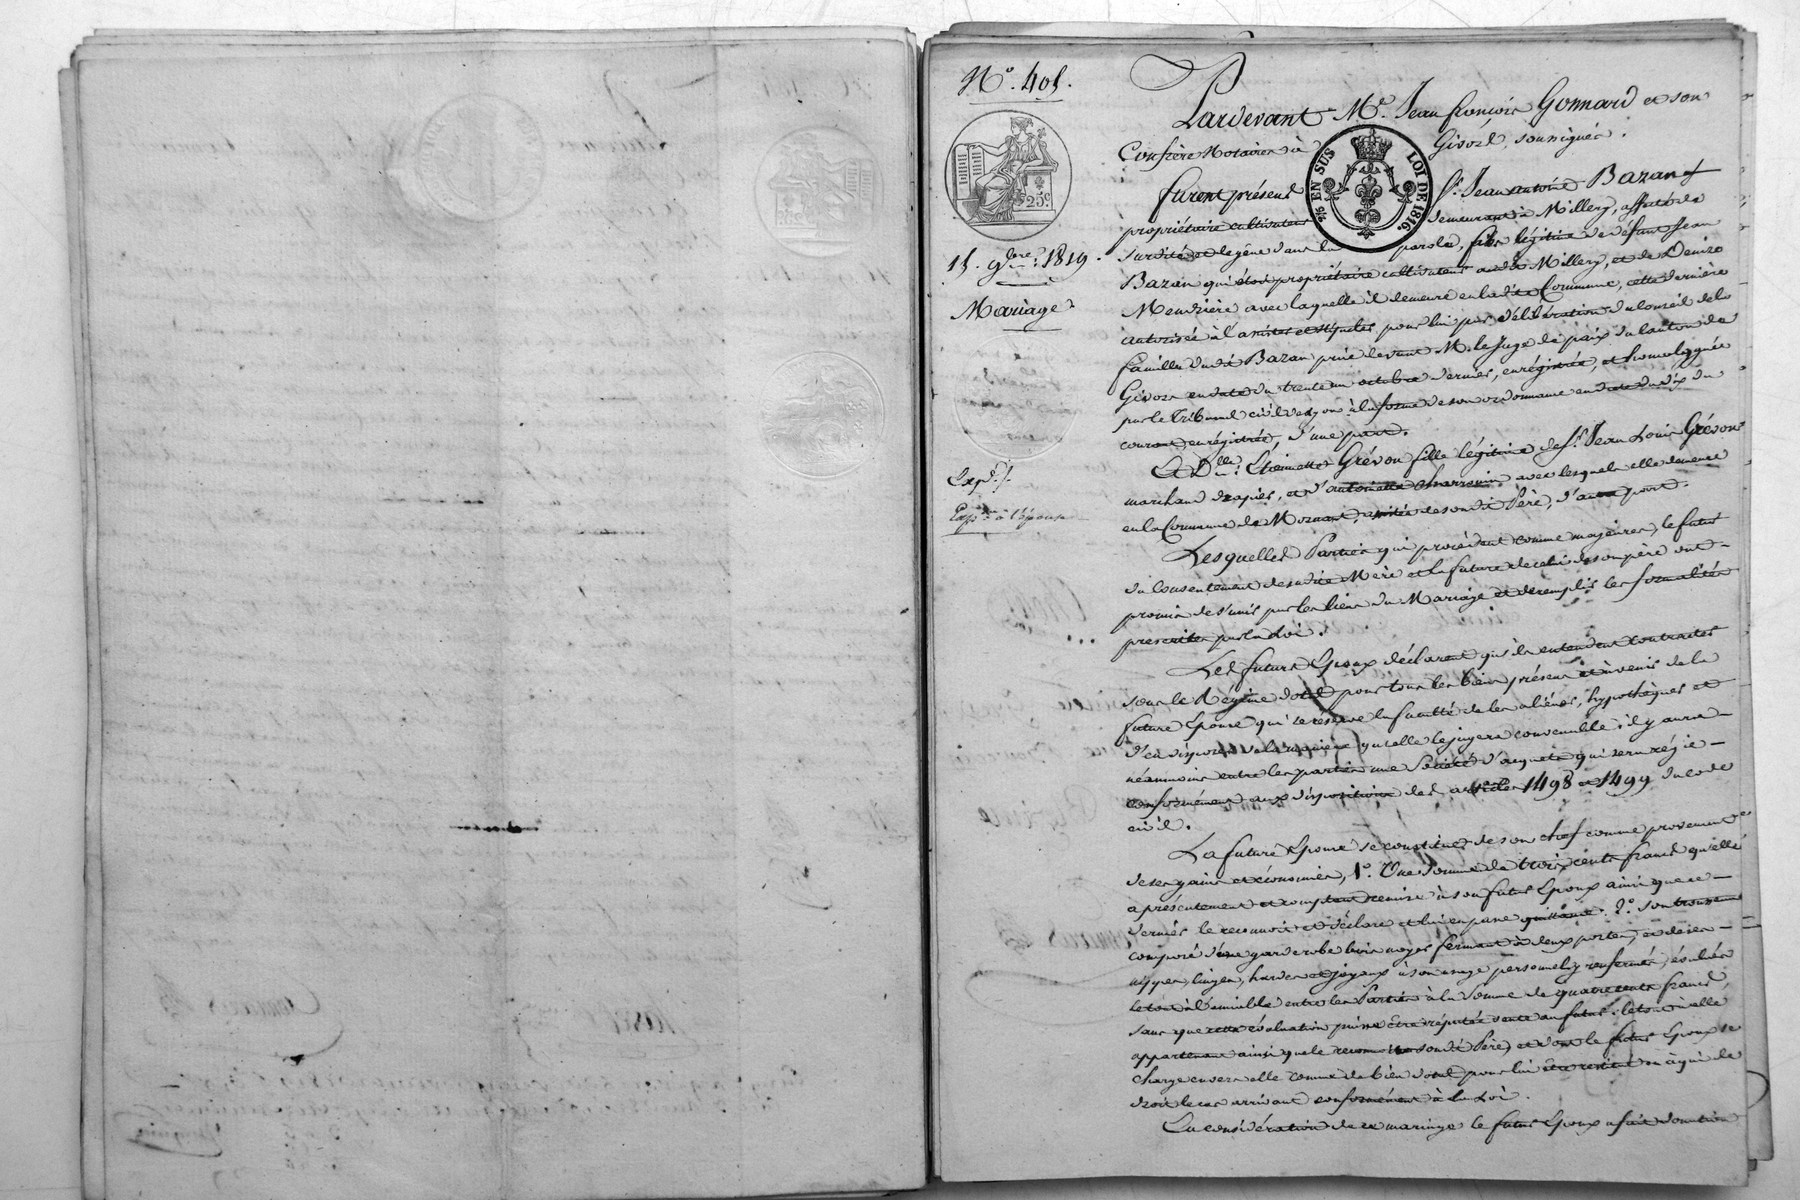 N.º 405.
25c
15. 9bre 1819.
Mariage
Expd. f.
Expon à l'épouse
Pardevant Me. Jean françois Gonnard et son
Confrère Notaires à Givors, soussignés.
2/5 EN SUS LOI DE 1816.
furent présens Sr. Jean antoine Bazan
propriétaire cultivateur demeurant à Millery, affecté de
surdité et de gêne dans la parole, fils légitime de défunt Jean
Bazan qui étoit propriétaire cultivateur audit Millery, et de Denise
Meudrière avec laquelle il demeure en ladite Commune, cette dernière
autorisée à l'assister et stipuler pour lui par délibération du Conseil de la
famille dudit Bazan prise devant M. le Juge de paix du Canton de
Givors en date du trente un octobre dernier, enrégistrée, et homologuée
par le Tribunal civil de Lyon à la forme de son ordonnance en date du dix du
courant enrégistrée, d'une part.
Et Dlle. Etiennette Grévon fille légitime de Sr. Jean Louis Grévon
marchand drapier, et d'antoinette Charronin avec lesquels elle demeure
en la Commune de Mornant, assistée de son dit Père, d'autre part.
Lesquelles Parties qui procèdent comme majeures, le futur
du Consentement de sadite Mère et la future de celui de son père ont
promis de s'unir par les liens du Mariage et de remplir les formalités
prescrites par la Loi.
Les futurs Epoux déclarent qu'ils entendent contracter
sous le Régime dotal pour tous les biens présens et à venir de la
future Epouse qui se réserve la faculté de les aliéner, hypothéquer et
d'en disposer de la manière qu'elle le jugera convenable; il y aura
néanmoins entre les parties une Société d'acquêts qui sera régie
conformément aux dispositions des articles 1498 et 1499 du code
civil.
La future Epouse se constitue de son chef comme provenant
de ses gains et économies, 1.º Une Somme de trois cents francs qu'elle
a présentement et comptant remise à son futur Epoux ainsi que ce
dernier le reconnoit et déclare et lui en passe quittance. 2.º son trousseau
composé d'une garderobe bois noyer fermant à deux portes, et de ses
nippes, linges, hardes et joyaux à son usage personnel y renfermés, évalués
le tout à l'amiable entre les Parties à la Somme de quatre cents francs,
sans que cette évaluation puisse être réputée vente au futur: le tout à elle
appartenant ainsi que le reconnoit son dit Père, et dont le futur Epoux se
charge envers elle comme de bien dotal pour lui être restitué ou à qui de
droit le cas arrivant conformément à la Loi.
En considération de ce mariage le futur Epoux a fait donation